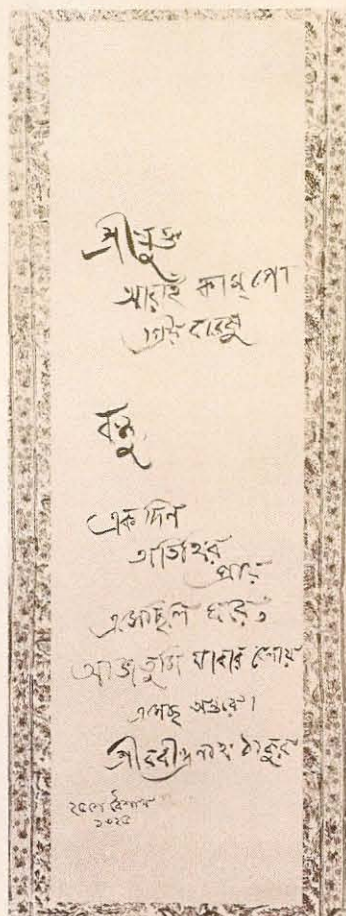 শ্রীযুক্ত
আরাই কাম্পো
প্রিয়বরেষু
বন্ধু,
একদিন
অতিথির
প্রায়
এসেছিলে ঘরে,
আজ তুমি যাবার বেলায়
এসেছ অন্তরে।
শ্রীরবীন্দ্রনাথ ঠাকুর
২৫শে বৈশাখ
১৩২৫